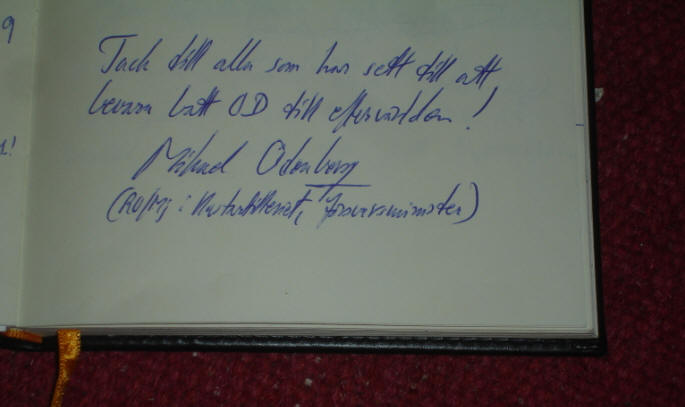 9
Tack till alla som har sett till att
bevara batt OD till eftervärlden!
Mikael Odenberg
försvarsminister)